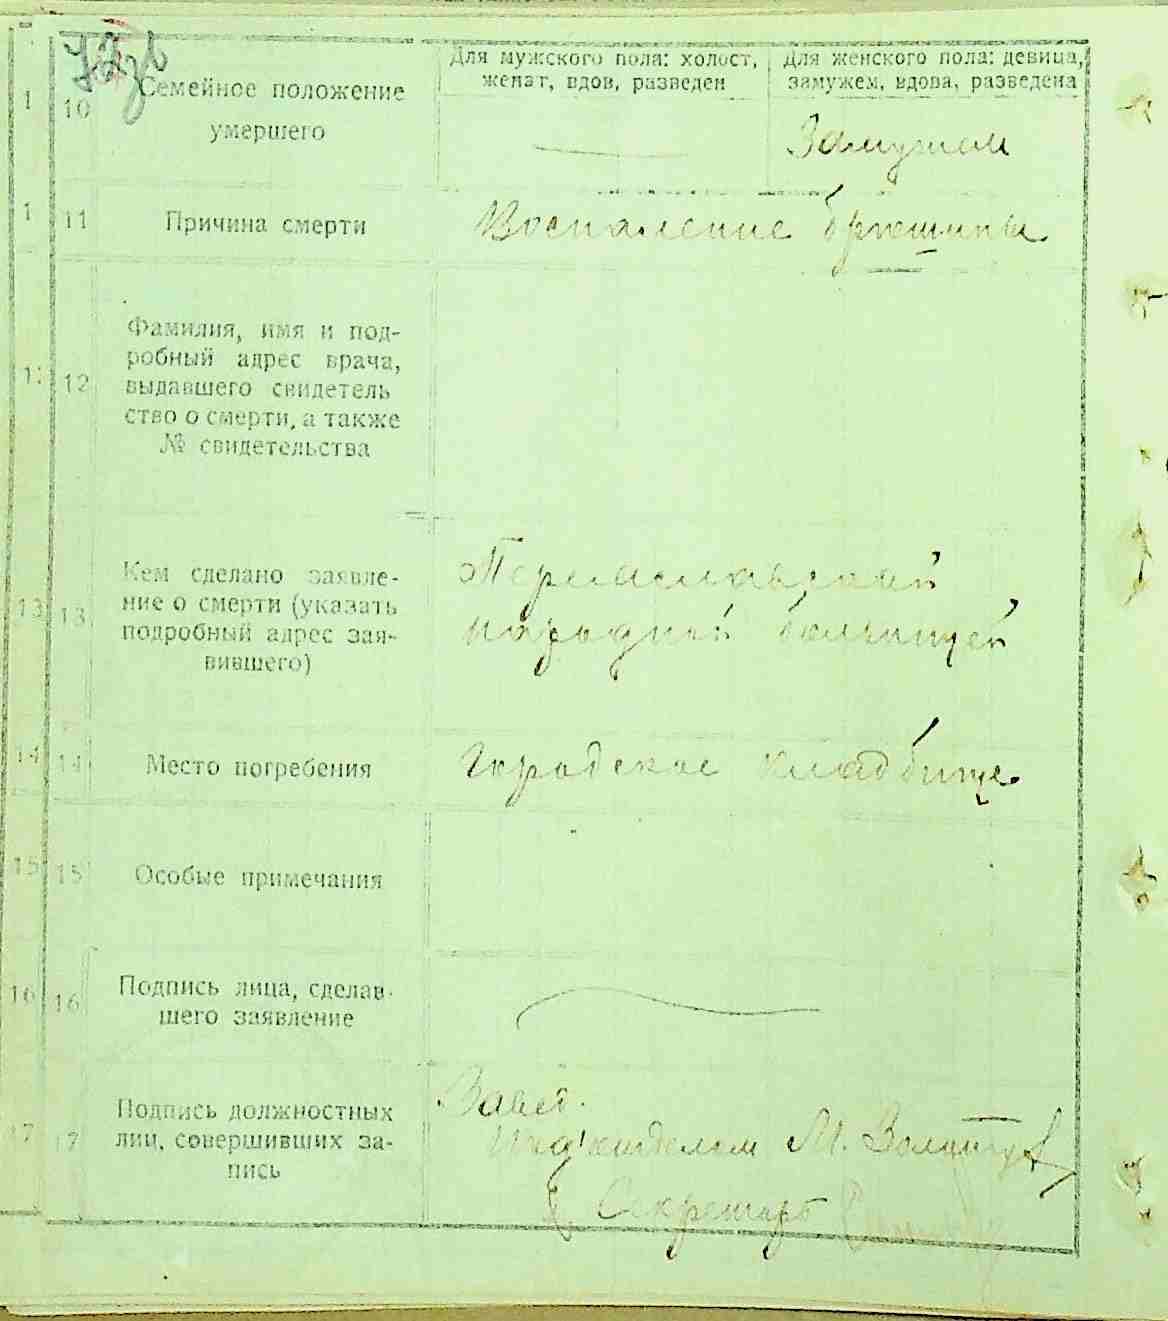 Для мужского пола: холост,
женат, вдов, разведен
Для женского пола: девица,
замужем, вдова, разведена
1
10
Семейное положение
умершего
Замужем
1
11
Причина смерти
Воспаление брюшины
Фамилия, имя и под-
робный адрес врача,
12
выдавшего свидетель
ство о смерти, а также
№ свидетельства
Кем сделано заявле-
13
13
ние о смерти (указать
подробный адрес зая-
вившего)
Переславской
народной больницей
14
14
Место погребения
Городское кладбище
15
15
Особые примечания
16
16
Подпись лица, сделав-
шего заявление
17
17
Подпись должностных
лиц, совершивших за-
пись
Завед.
М.
Секретарь